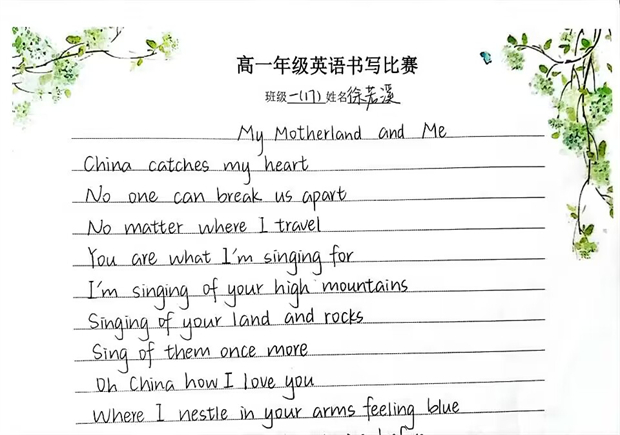 高一年级英语书写比赛
班级一(17) 姓名徐若溪
My Motherland and Me
China catches my heart
No one can break us apart
No matter where I travel
You are what I'm singing for
I'm singing of your high mountains
Singing of your land and rocks
Sing of them once more
Oh China how I love you
Where I nestle in your arms feeling blue